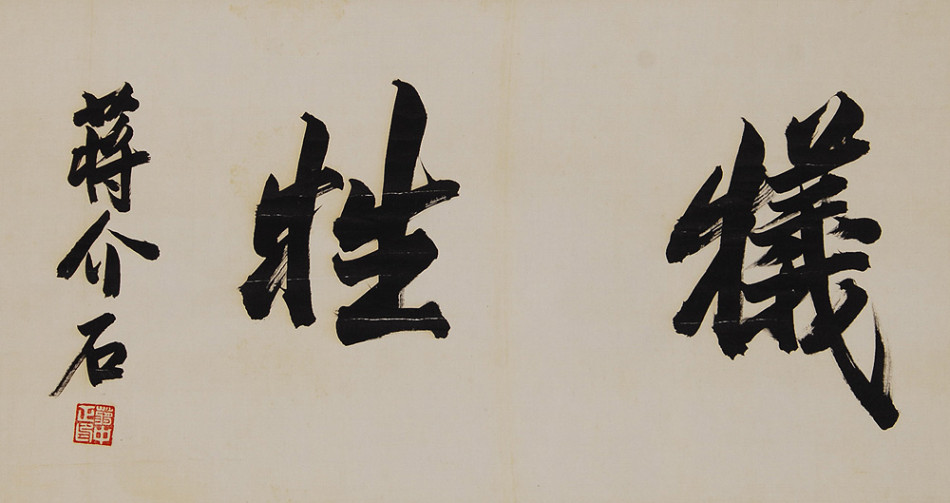 犧牲
蔣介石
蔣中正印